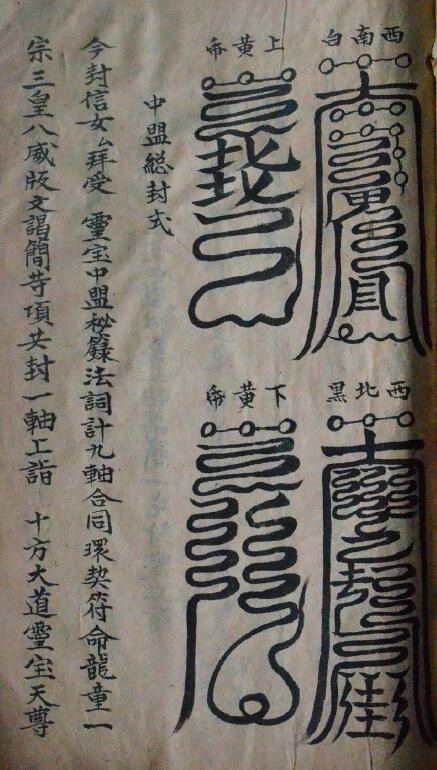 西南白
西北黑
上黄帝
下黄帝
中盟総封式
今封信女厶拜受 靈宝中盟秘籙法詞計九軸合同環契符命龍童一
宗三皇八威版文詔簡等項共封一軸上詣 十方大道靈宝天尊